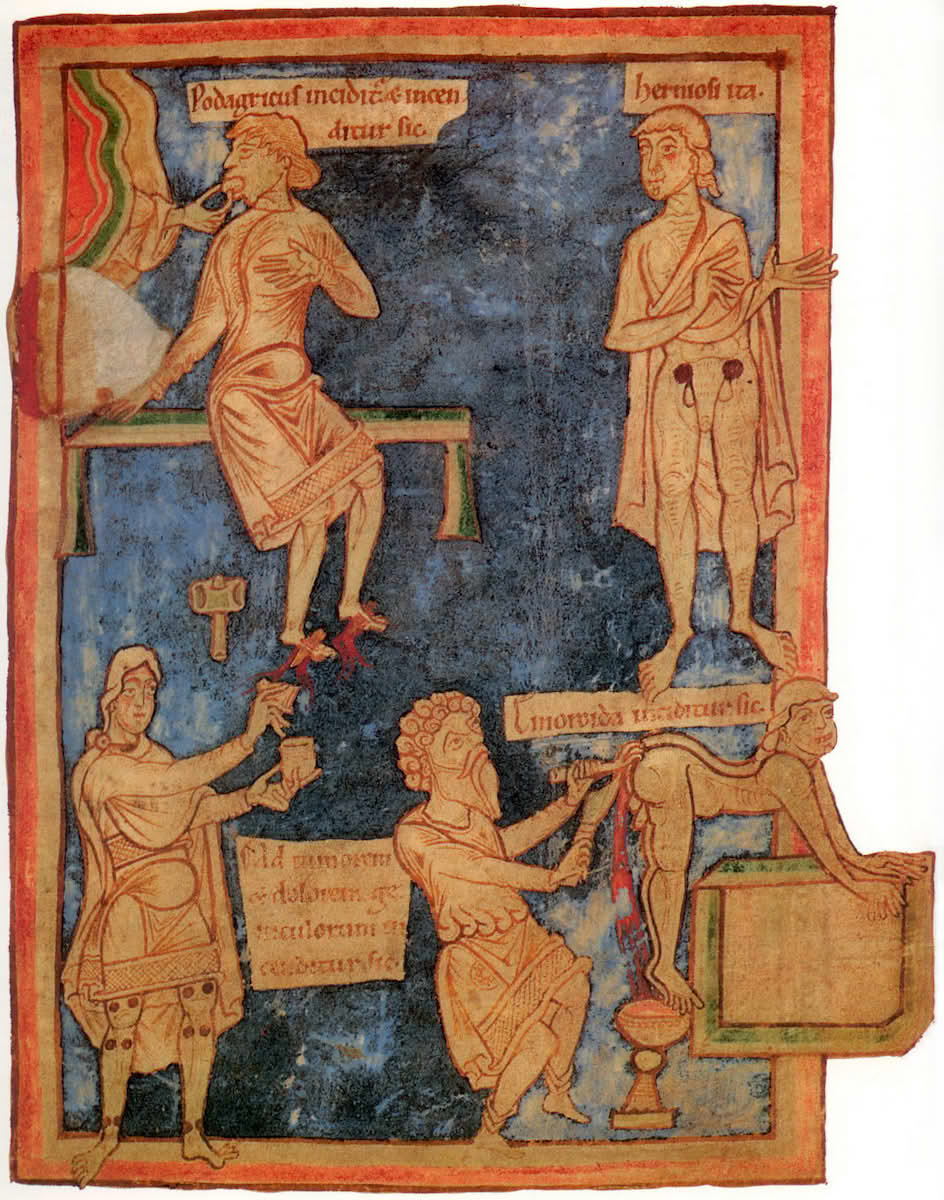 Podagricus incidit᷑ & incen
ditur sic.
herniosi ita.
Emoroida inciditur sic.
Ad tumorem
& dolorem ge
niculorum in
cenditur sic.